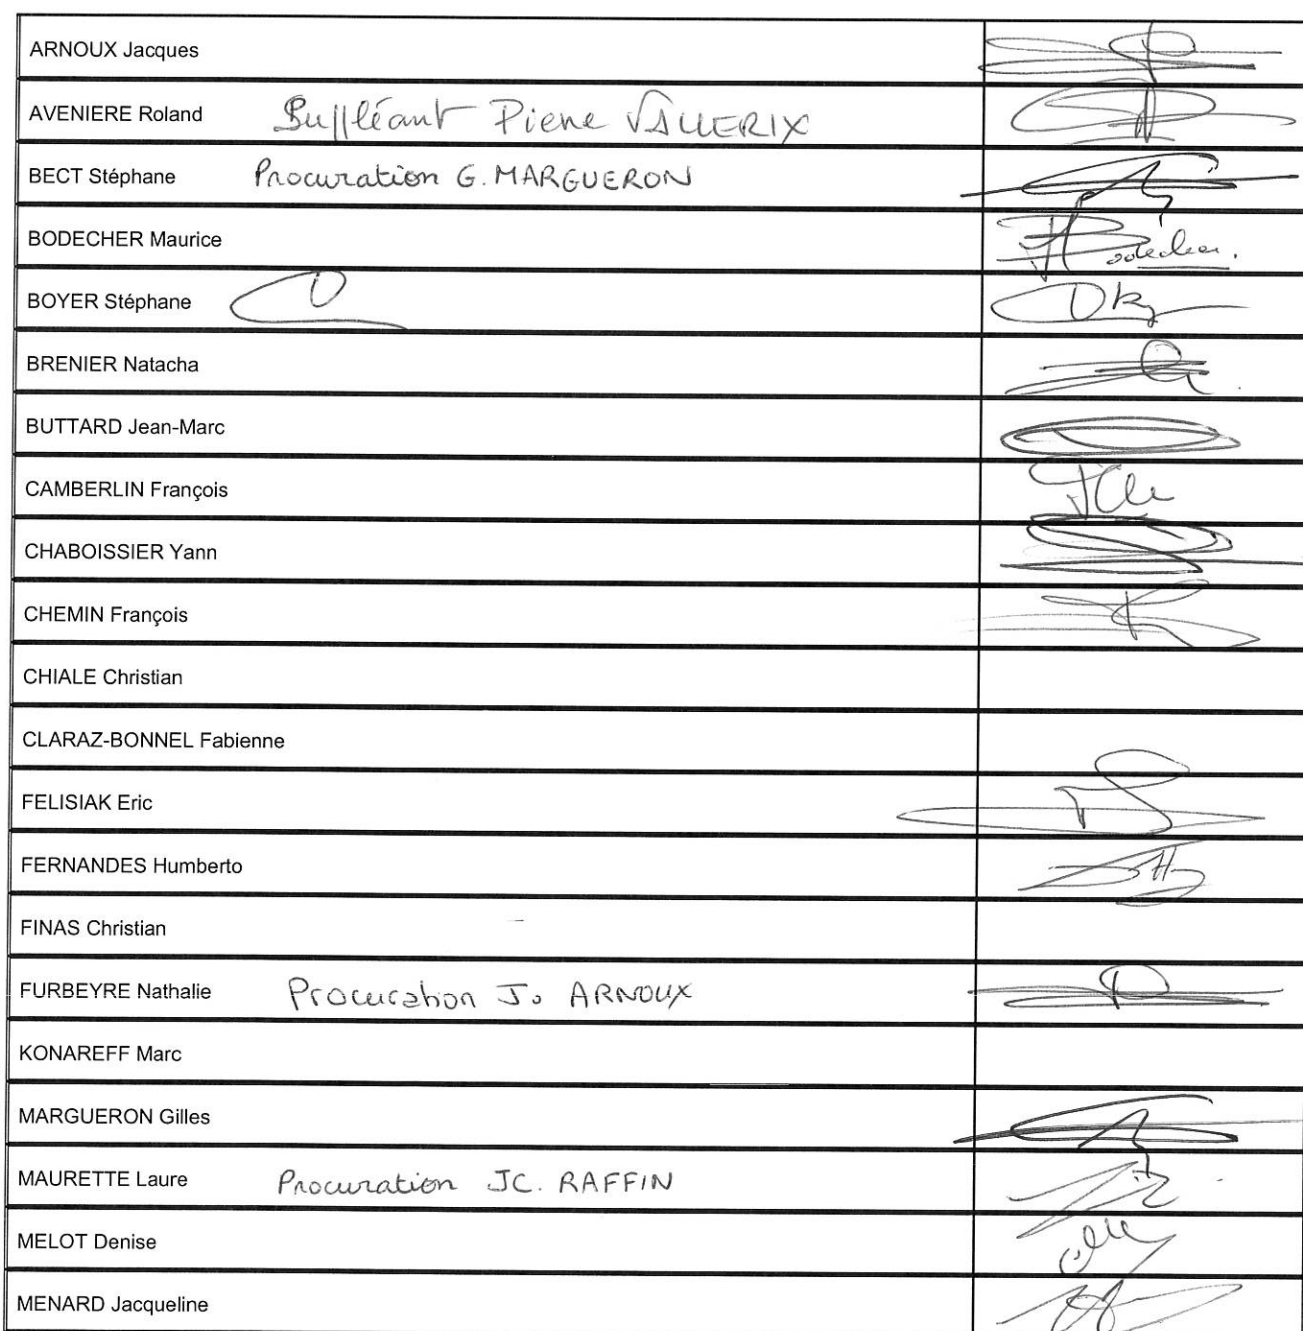 ARNOUX Jacques
AVENIERE Roland Suppléant Pierre VALLERIX
BECT Stéphane Procuration G. MARGUERON
BODECHER Maurice Bodecher.
BOYER Stéphane
BRENIER Natacha
BUTTARD Jean-Marc
CAMBERLIN François
CHABOISSIER Yann
CHEMIN François
CHIALE Christian
CLARAZ-BONNEL Fabienne
FELISIAK Eric
FERNANDES Humberto
FINAS Christian
FURBEYRE Nathalie Procuration J. ARNOUX
KONAREFF Marc
MARGUERON Gilles
MAURETTE Laure Procuration JC. RAFFIN
MELOT Denise
MENARD Jacqueline